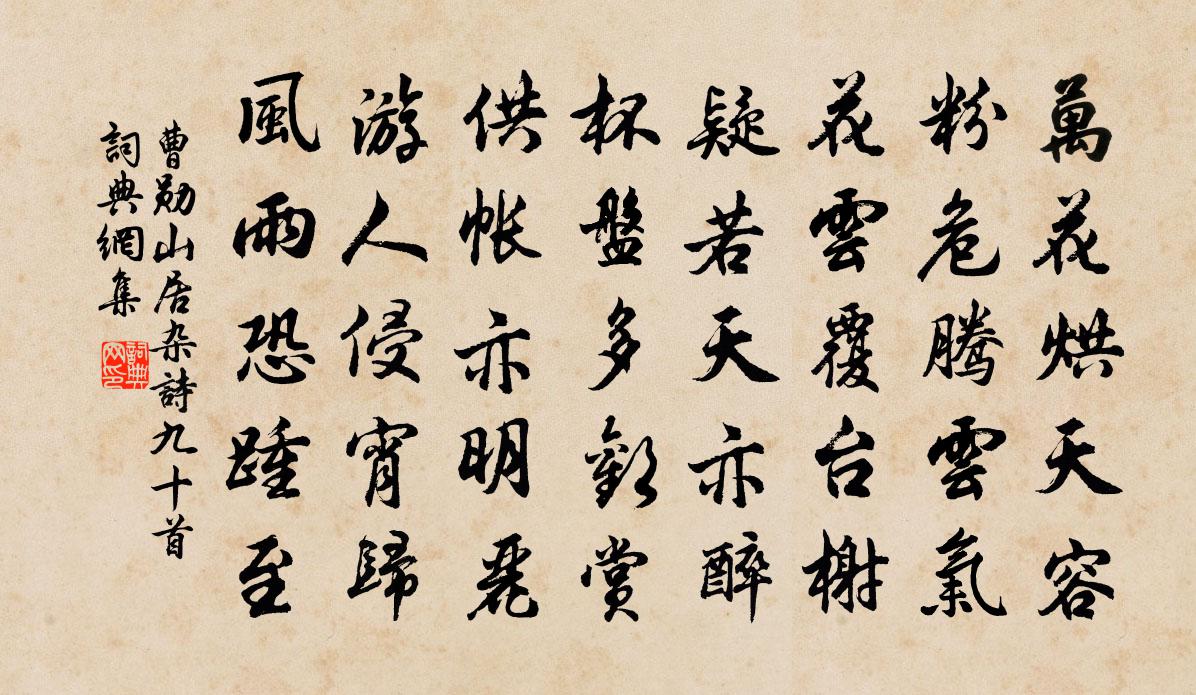 萬花烘天容
粉危騰雲氣
花雲覆台榭
疑若天亦醉
杯盤多歡賞
供帳亦明麗
游人侵宵歸
風雨恐踵至
曹勛山居杂詩九十首
詞典網集
詞典网印